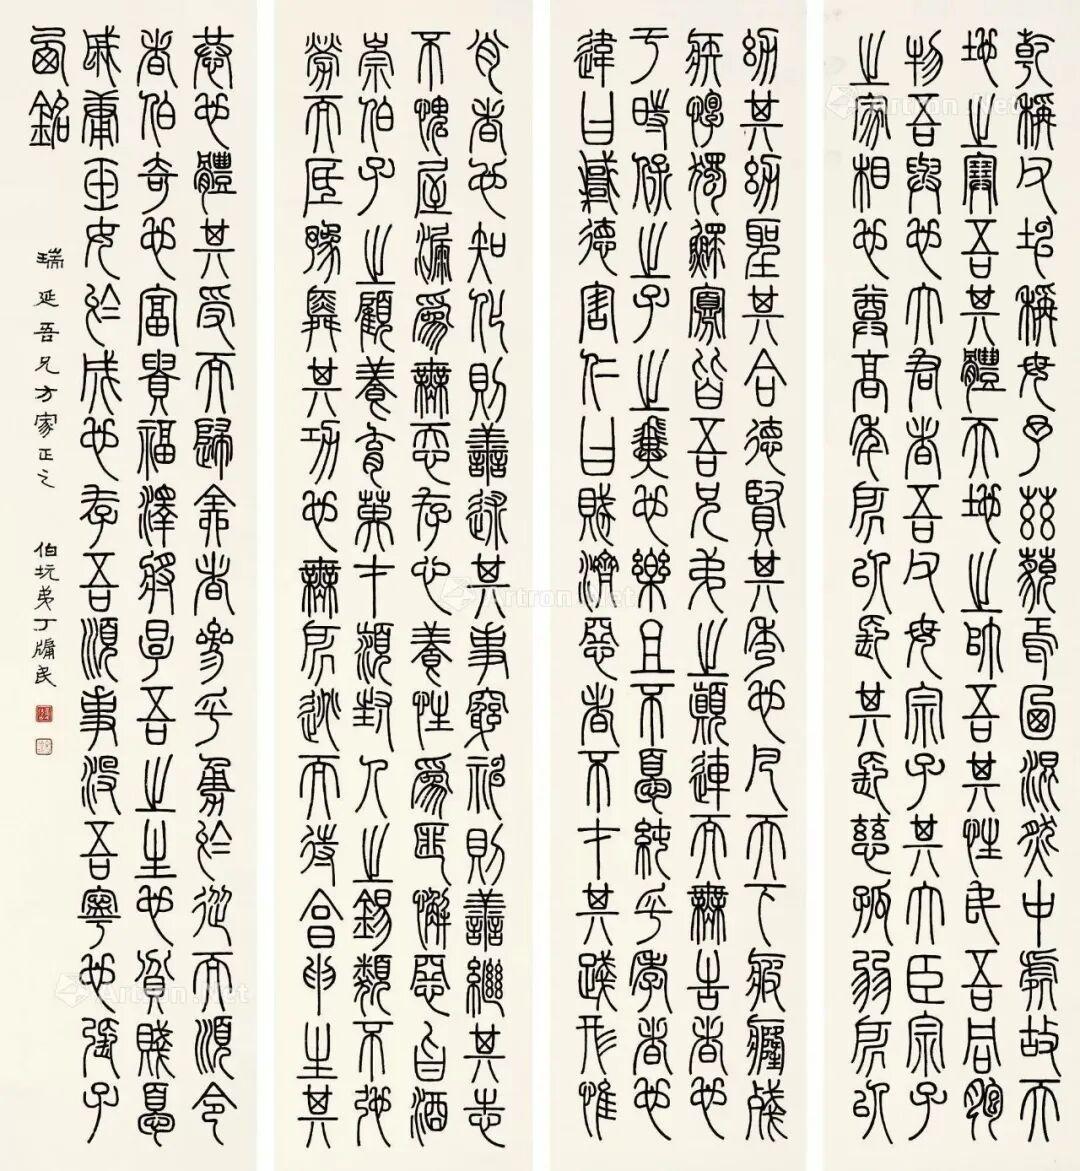 乾稱父坤稱母予茲藐焉卥混然中處故天
地之塞吾其體天地之帥吾其性民吾同胞
物吾與也大君者吾父母宗子其大臣宗子
之家相也尊高年所以長其長慈孤弱所以
幼其幼聖其合德賢其秀也凡天下疲癃殘
疾惸獨鰥寡皆吾兄弟之顛連而無告者也
于時保之子之翼也樂且不憂純乎孝者也
違曰悖德害仁曰賊濟惡者不才其踐形惟
肖者也知化則善述其事窮神則善繼其志
不愧屋漏為無忝存心養性為匪懈惡旨酒
崇伯子之顧養育英才潁封人之錫類不弛
勞而厎豫舜其功也無所逃而待烹申生其
恭也體其受而歸全者參乎勇於從而順令
者伯奇也富貴福澤將厚吾之生也貧賤憂
戚庸玉女於成也存吾順事沒吾寧也張子
西銘
瑞延吾兄方家正之 伯坑弟丁牖民